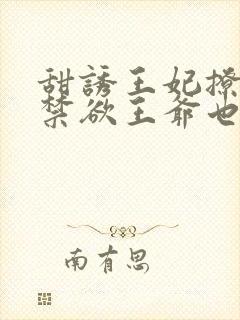 甜誘王妃撩
禁欲王爺也
南有思